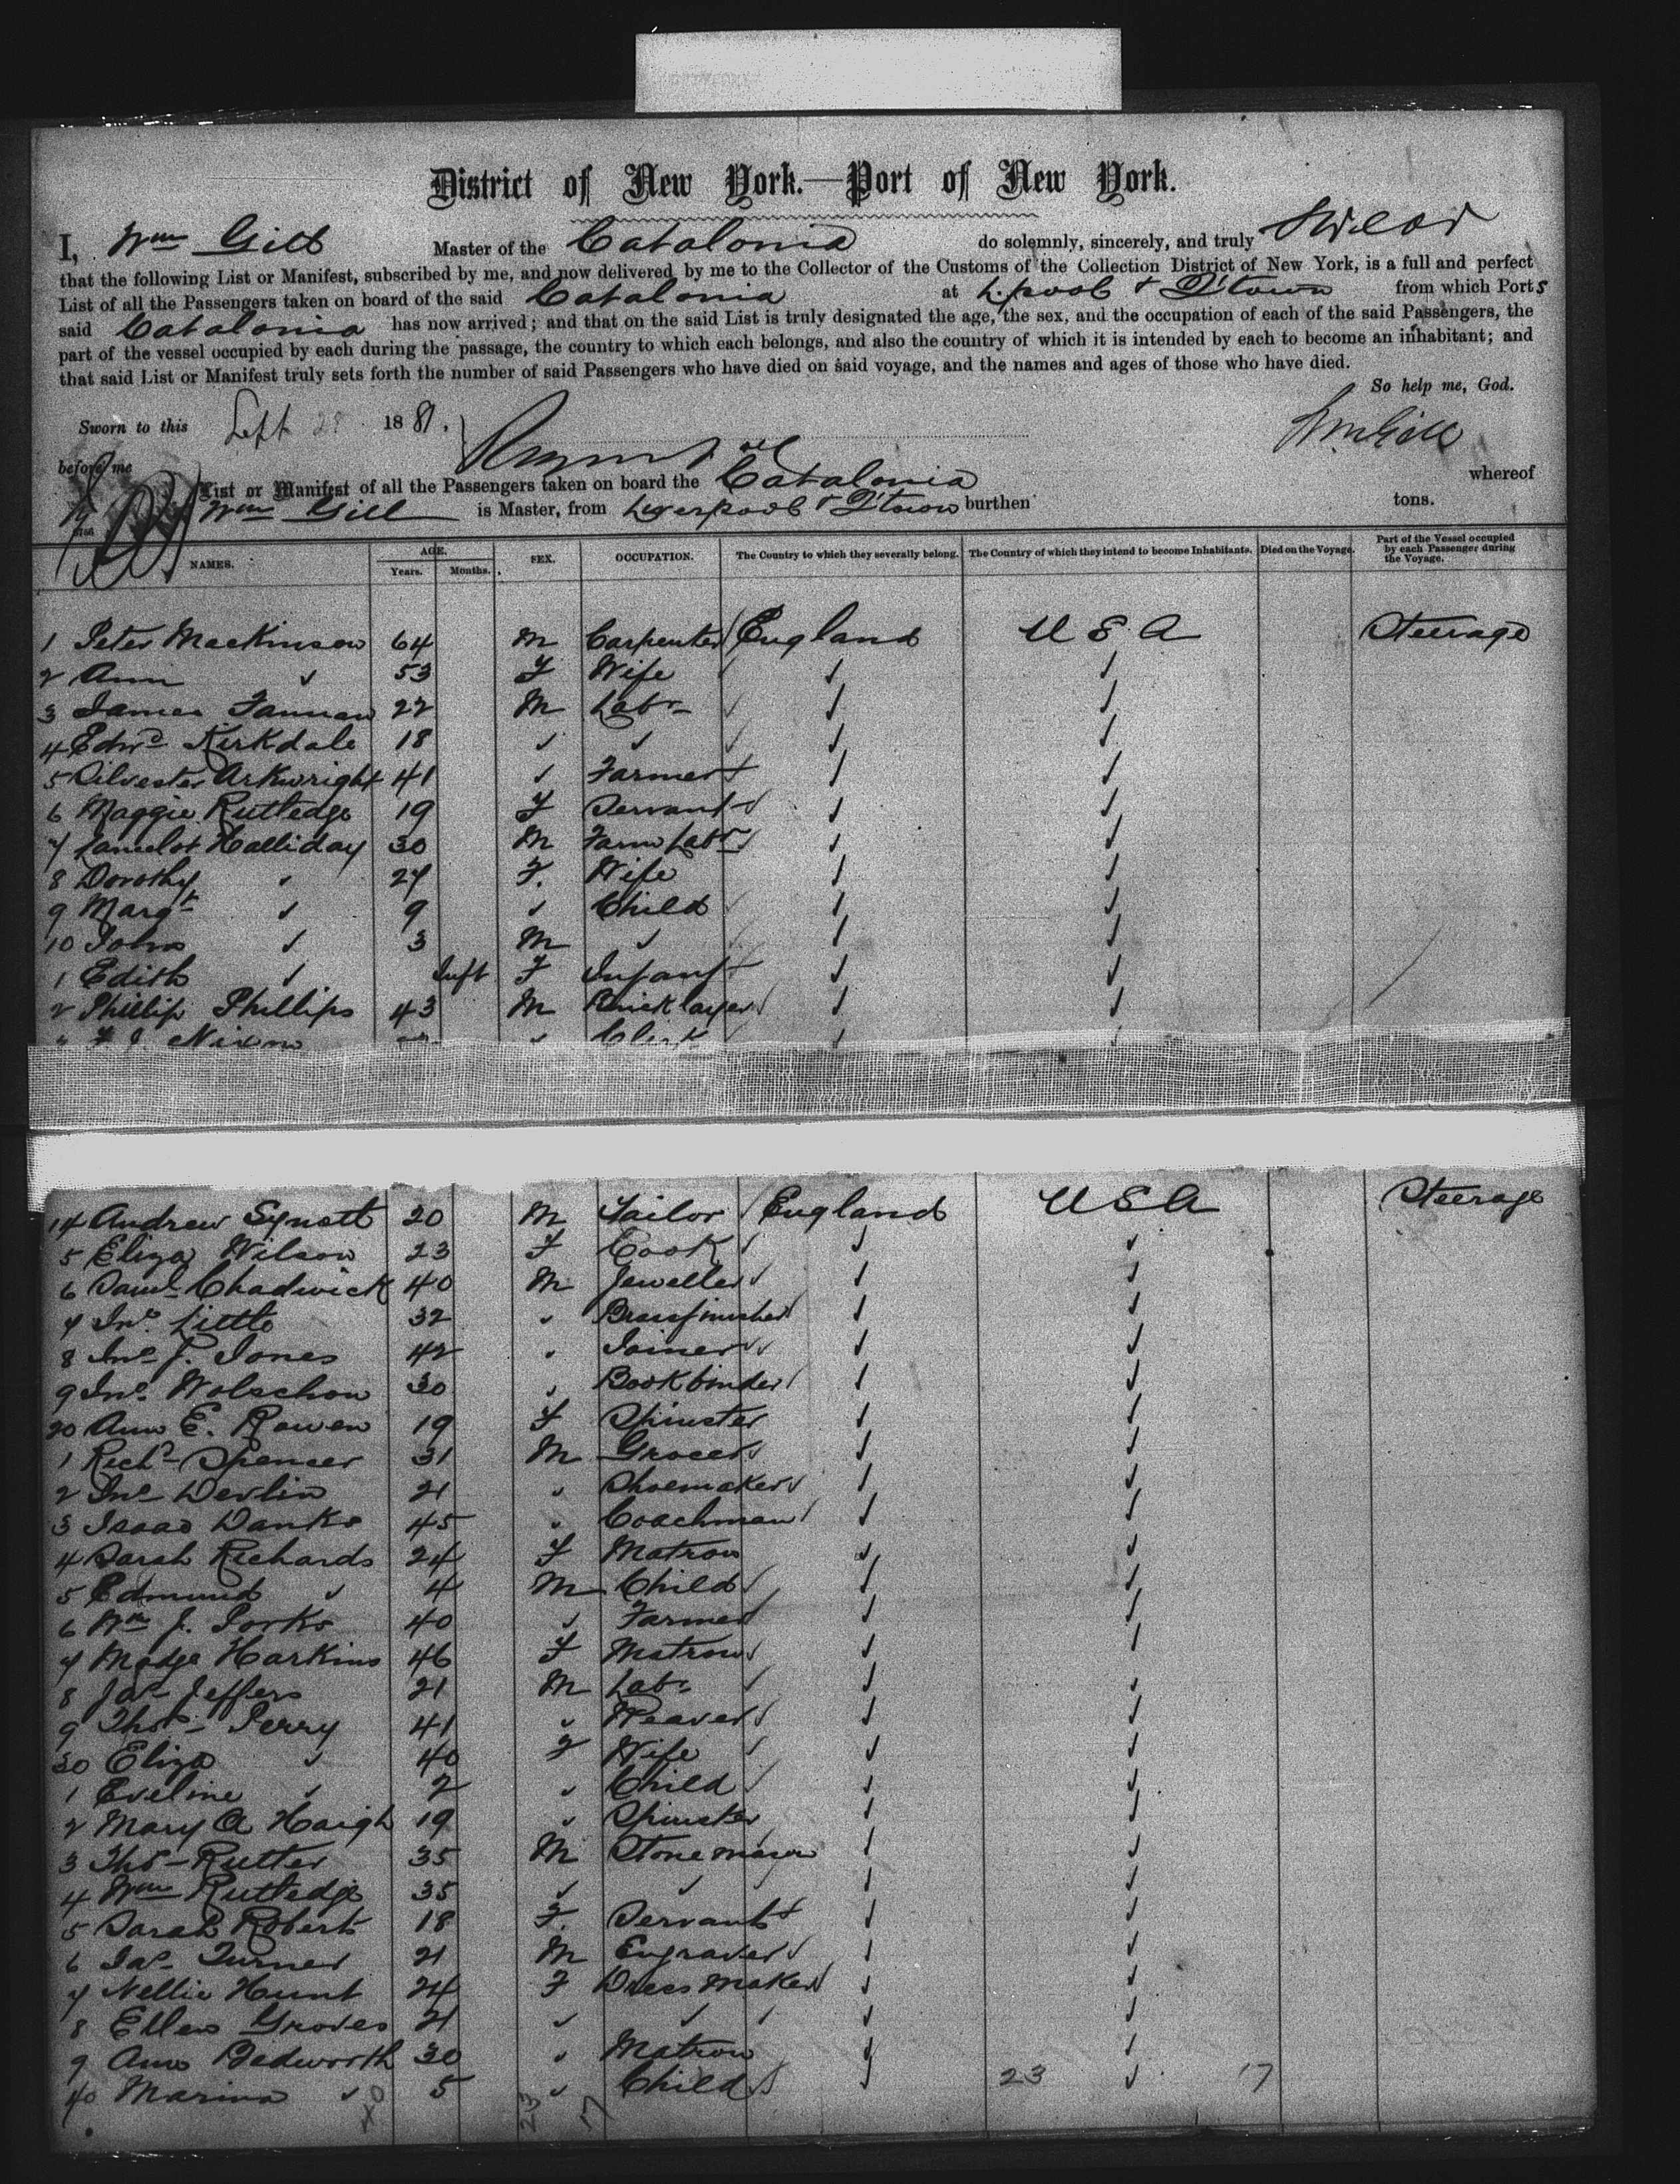 District of New York.—Port of New York.
I, Wm Gill Master of the Catalonia do solemnly, sincerely, and truly Swear
that the following List or Manifest, subscribed by me, and now delivered by me to the Collector of the Customs of the Collection District of New York, is a full and perfect
List of all the Passengers taken on board of the said Catalonia at L'pool & Q'town from which Ports
said Catalonia has now arrived; and that on the said List is truly designated the age, the sex, and the occupation of each of the said Passengers, the
part of the vessel occupied by each during the passage, the country to which each belongs, and also the country of which it is intended by each to become an inhabitant; and
that said List or Manifest truly sets forth the number of said Passengers who have died on said voyage, and the names and ages of those who have died.
So help me, God.
Sworn to this Sept 28 1881.
Wm Gill
before me
List or Manifest of all the Passengers taken on board the Catalonia whereof
Wm Gill is Master, from Liverpool & Q'town burthen tons.
NAMES. AGE. Years. Months. SEX. OCCUPATION. The Country to which they severally belong. The Country of which they intend to become Inhabitants. Died on the Voyage. Part of the Vessel occupied by each Passenger during the Voyage.
1 Peter Mackinson 64 M Carpenter England U S A Steerage
2 Ann ✓ 53 F Wife ✓ ✓
3 James Fannan 22 M Labr ✓ ✓
4 Edwd Kirkdale 18 ✓ ✓ ✓ ✓
5 Silvester Arkwright 41 ✓ Farmer ✓ ✓
6 Maggie Rutledge 19 F Servant ✓ ✓
7 Lancelot Halliday 30 M Farm Labr ✓ ✓
8 Dorothy ✓ 27 F. Wife ✓ ✓
9 Margt ✓ 9 ✓ Child ✓ ✓
10 John ✓ 3 M ✓ ✓ ✓
1 Edith ✓ Inft F Infant ✓ ✓
2 Phillip Phillips 43 M Bricklayer ✓ ✓
Nixon ✓ Clerk ✓
14 Andrew Synott 20 M Tailor England U S A Steerage
5 Eliza Wilson 23 F Cook ✓ ✓
6 Saml Chadwick 40 M Jeweller ✓ ✓
7 Jno. Little 32 ✓ Brassfinisher ✓ ✓
8 Jno J. Jones 42 ✓ Joiner ✓ ✓
9 Jno. Wolschon 30 ✓ Bookbinder ✓ ✓
20 Ann E. Rowen 19 F Spinster ✓ ✓
1 Richd Spencer 31 M Grocer ✓ ✓
2 Jno Devlin 21 ✓ Shoemaker ✓ ✓
3 Isaac Danks 45 ✓ Coachman ✓ ✓
4 Sarah Richards 24 F Matron ✓ ✓
5 Edmund ✓ 4 M Child ✓ ✓
6 Wm J. 40 ✓ Farmer ✓ ✓
7 Madge Harkins 46 F Matron ✓ ✓
8 Jas Jeffers 21 M Labr ✓ ✓
9 Thos Perry 41 ✓ Weaver ✓ ✓
30 Eliza ✓ 40 F Wife ✓ ✓
1 Eveline ✓ 2 ✓ Child ✓ ✓
2 Mary A Haigh 19 ✓ Spinster ✓ ✓
3 Thos Rutter 35 M Stone mason ✓ ✓
4 Wm Rutledge 35 ✓ ✓ ✓ ✓
5 Sarah Robert 18 F. Servant ✓ ✓
6 Jas Turner 21 M Engraver ✓ ✓
7 Nellie Hunt 24 F Dress Maker ✓ ✓
8 Ellen Groves 21 ✓ ✓ ✓ ✓
9 Ann Bedworth 30 ✓ Matron ✓ ✓
40 Marina ✓ 5 ✓ Child ✓ 23 ✓ 17
40 23 17